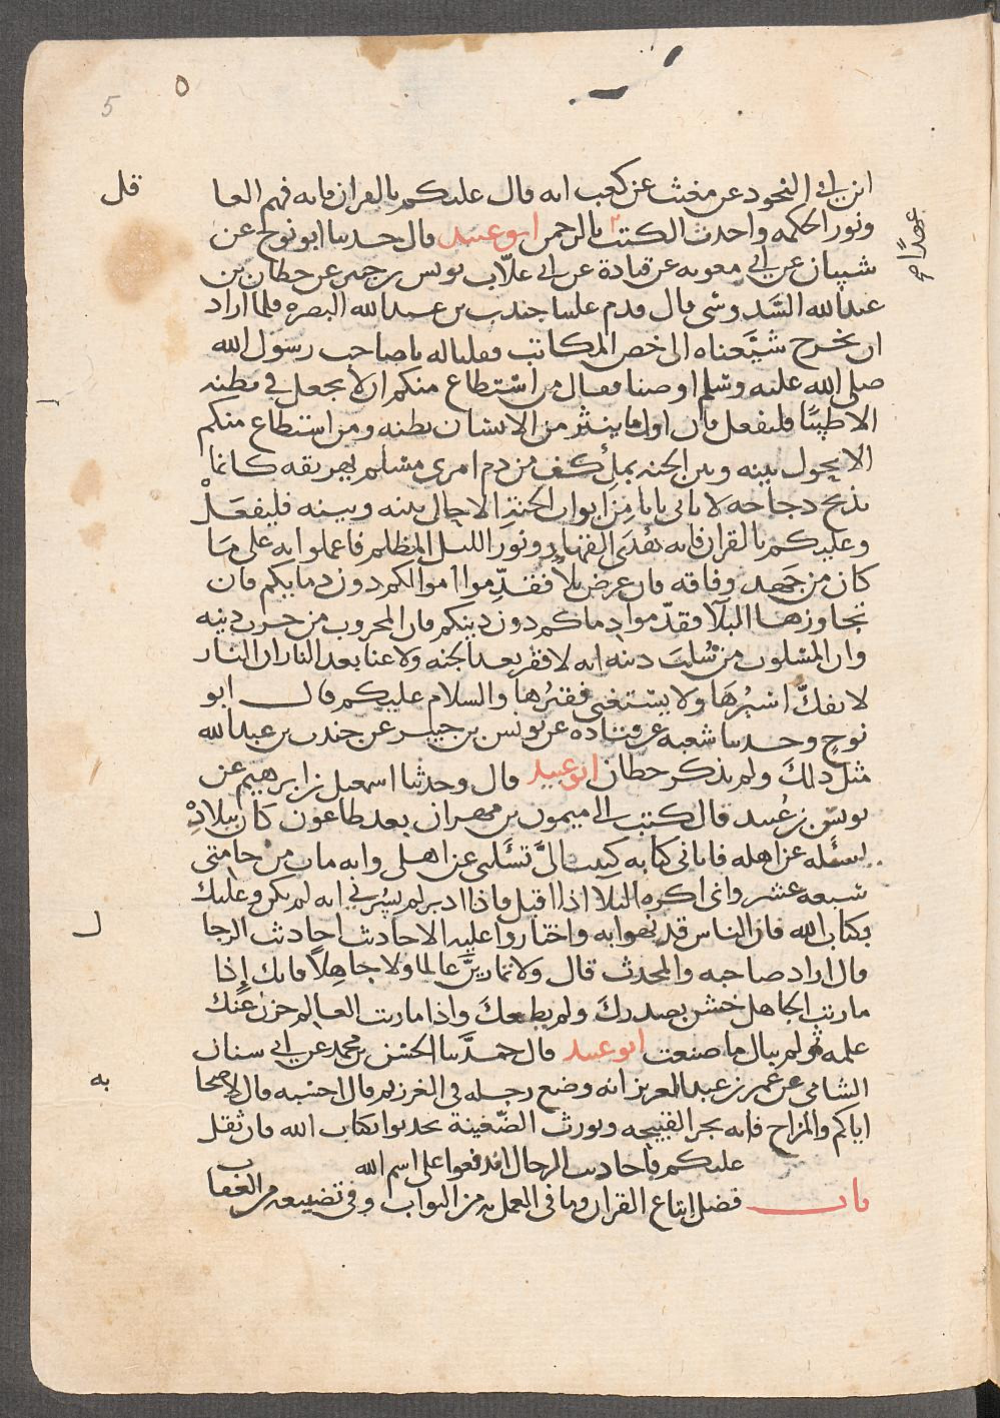 5
ابن ابي النجود عن مغيث عن كعب انه قال عليكم بالقران فانه فهم العقل
ونور الحكمه واحدث الكتب بالرحمن عهدًا ابو عبيد قال حدثنا ابو نوح عن
شيبان عن ابي معويه عن قتادة عن ابي غلاب يونس بن جبير عن حطان بن
عبدالله السدوسي قال قدم علينا جندب بن عبدالله البصره فلما اراد
ان يخرج شيّعناه الى خص المكاتب فقلنا له يا صاحب رسول الله
صلى الله عليه وسلم اوصنا فقال من استطاع منكم ان لا يجعل في بطنه
الا طيبًا فليفعل فان اول ما ينتثر من الانسان بطنه ومن استطاع منكم
الا يحول بينه وبين الجنه بملئ كف من دم امرئ مسلم يهريقه كانما
يذبح دجاجه لا ياتي بابا من ابواب الجنة الا حال بينه وبينه فليفعل
وعليكم بالقران فانه هُدَى النهار ونور الليل المظلم فاعملوا به على ما
كان من جهد وفاقه فان عرض بلاً فقدّموا اموالكم دون دمايكم فان
تجاوزها البلآ فقدّموا دماكم دون دينكم فان المحروب من حرب دينه
وان المسلوب من سُلبَ دينه انه لا فقر بعد الجنه ولا غنا بعد النار ان النار
لا يفكّ اسيرُهَا ولا يستغني فقيرُها والسلام عليكم قال ابو
نوح وحدثنا شعبه عن قتاده عن يونس بن جبير عن جندب بن عبدالله
مثل ذلك ولم يذكر حطان ابو عبيد قال وحدثنا اسمعيل بن ابرهيم عن
يونس بن عُبيد قال كتب الى ميمون بن مهران بعد طاعون كان ببلادِ
يسئله عن اهله فاتاني كتابه كتبت اليَّ تسئلني عن اهلي وانه مات من حامتي
سبعه عشر واني اكره البلا اذا اقبل فاذا ادبر لم يسُرّني انه لم يكن وعليك
بكتاب الله فان الناس قد بهوا به واختاروا عليه الاحاديث احاديث الرجال
قال اراد صاحبه والمحدث قال ولا تمارينَّ عالما ولا جاهلاً فانك إذا
ماريت الجاهل خشن بصدرك ولم يطعك واذا ماريت العالم خزن عنك
علمه ثم لم يبال ما صنعت ابو عبيد قال حدَّثنا الحسن بن محمد عن ابي سنان
الشامي عن عمر بن عبد العزيز انه وضع رجله في الغرز ثم قال احسبه قال لاصحابه
اياكم والمزاح فانه يجر القبيحه ويورث الضّغينة تحدثوا بكتاب الله فان ثقل
عليكم فاحاديث الرجال اندفعوا على اسم الله
باب فضل اتباع القران وما في العمل به من الثواب وفي تضييعه من العقاب